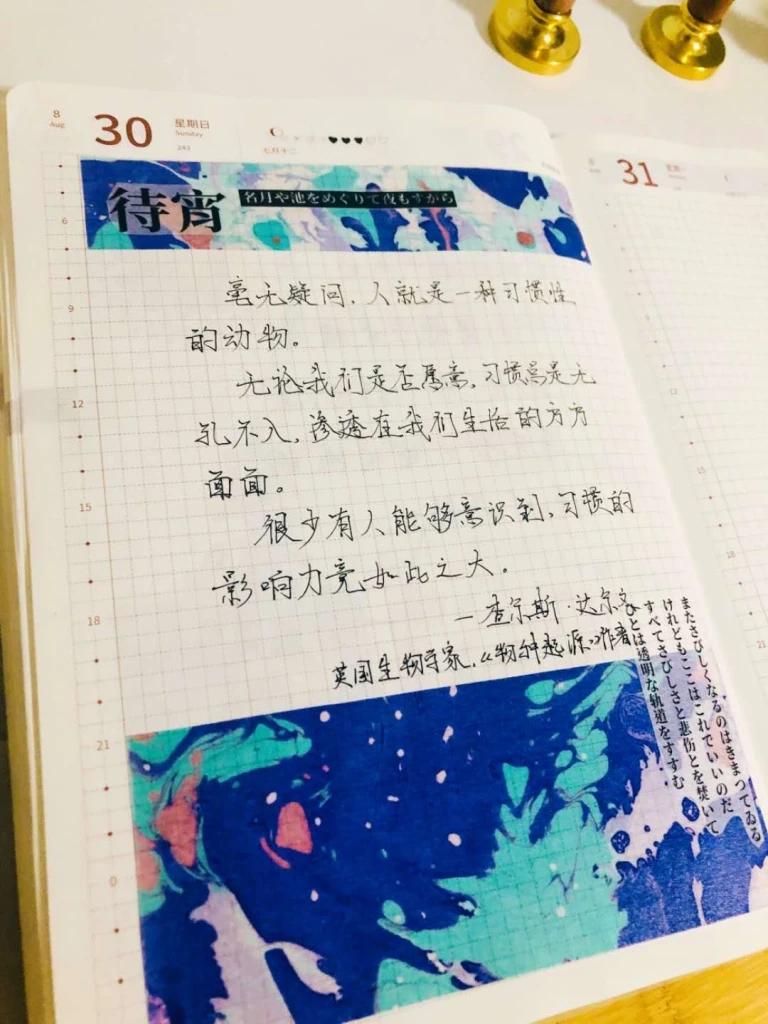 8
Aug
30
星期日
Sunday
242
七月十二
待宵
名月や池をめぐりて夜もすがら
毫无疑问,人就是一种习惯性
的动物。
无论我们是否愿意,习惯总是无
孔不入,渗透在我们生活的方方
面面。
很少有人能够意识到,习惯的
影响力竟如此之大。
—查尔斯·达尔文
英国生物学家,《物种起源》作者
またさびしくなるのはきまつてゐる
けれどもここはこれでいいのだ
すべてさびしさと悲傷とを焚いて
ひとは透明な軌道をすすむ
6
9
12
15
18
21
0
31
12
15
18
21